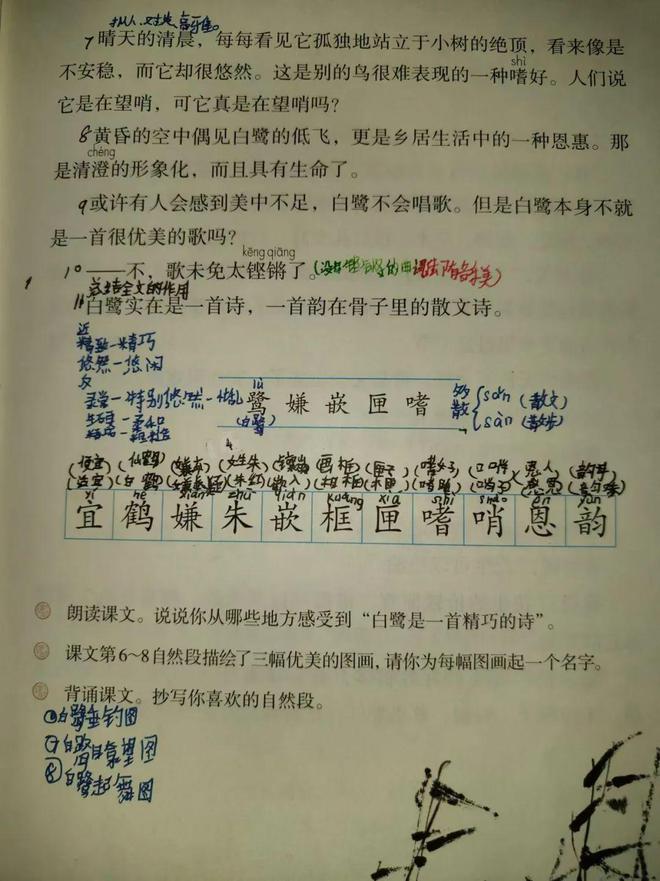 7 晴天的清晨，每每看见它孤独地站立于小树的绝顶，看来像是
shì
不安稳，而它却很悠然。这是别的鸟很难表现的一种嗜好。人们说
它是在望哨，可它真是在望哨吗？
8 黄昏的空中偶见白鹭的低飞，更是乡居生活中的一种恩惠。那
chéng
是清澄的形象化，而且具有生命了。
9 或许有人会感到美中不足，白鹭不会唱歌。但是白鹭本身不就
是一首很优美的歌吗？
kēng qiāng
10 ——不，歌未免太铿锵了。
总结全文的作用
11 白鹭实在是一首诗，一首韵在骨子里的散文诗。
近
精致—精巧
悠然—悠闲
反
lù
鹭 嫌 嵌 匣 嗜
(白鹭)
散 sǎn (散文)
sàn (散步)
(便宜) (仙鹤)
(适宜) (白鹤) (朱红) (嵌入)
yí hè xián zhū qiàn kuàng xiá shì shào ēn yùn
宜 鹤 嫌 朱 嵌 框 匣 嗜 哨 恩 韵
朗读课文。说说你从哪些地方感受到“白鹭是一首精巧的诗”。
课文第6~8自然段描绘了三幅优美的图画，请你为每幅图画起一个名字。
背诵课文。抄写你喜欢的自然段。
⑥白鹭垂钓图
⑦白鹭瞭望图
⑧白鹭起舞图